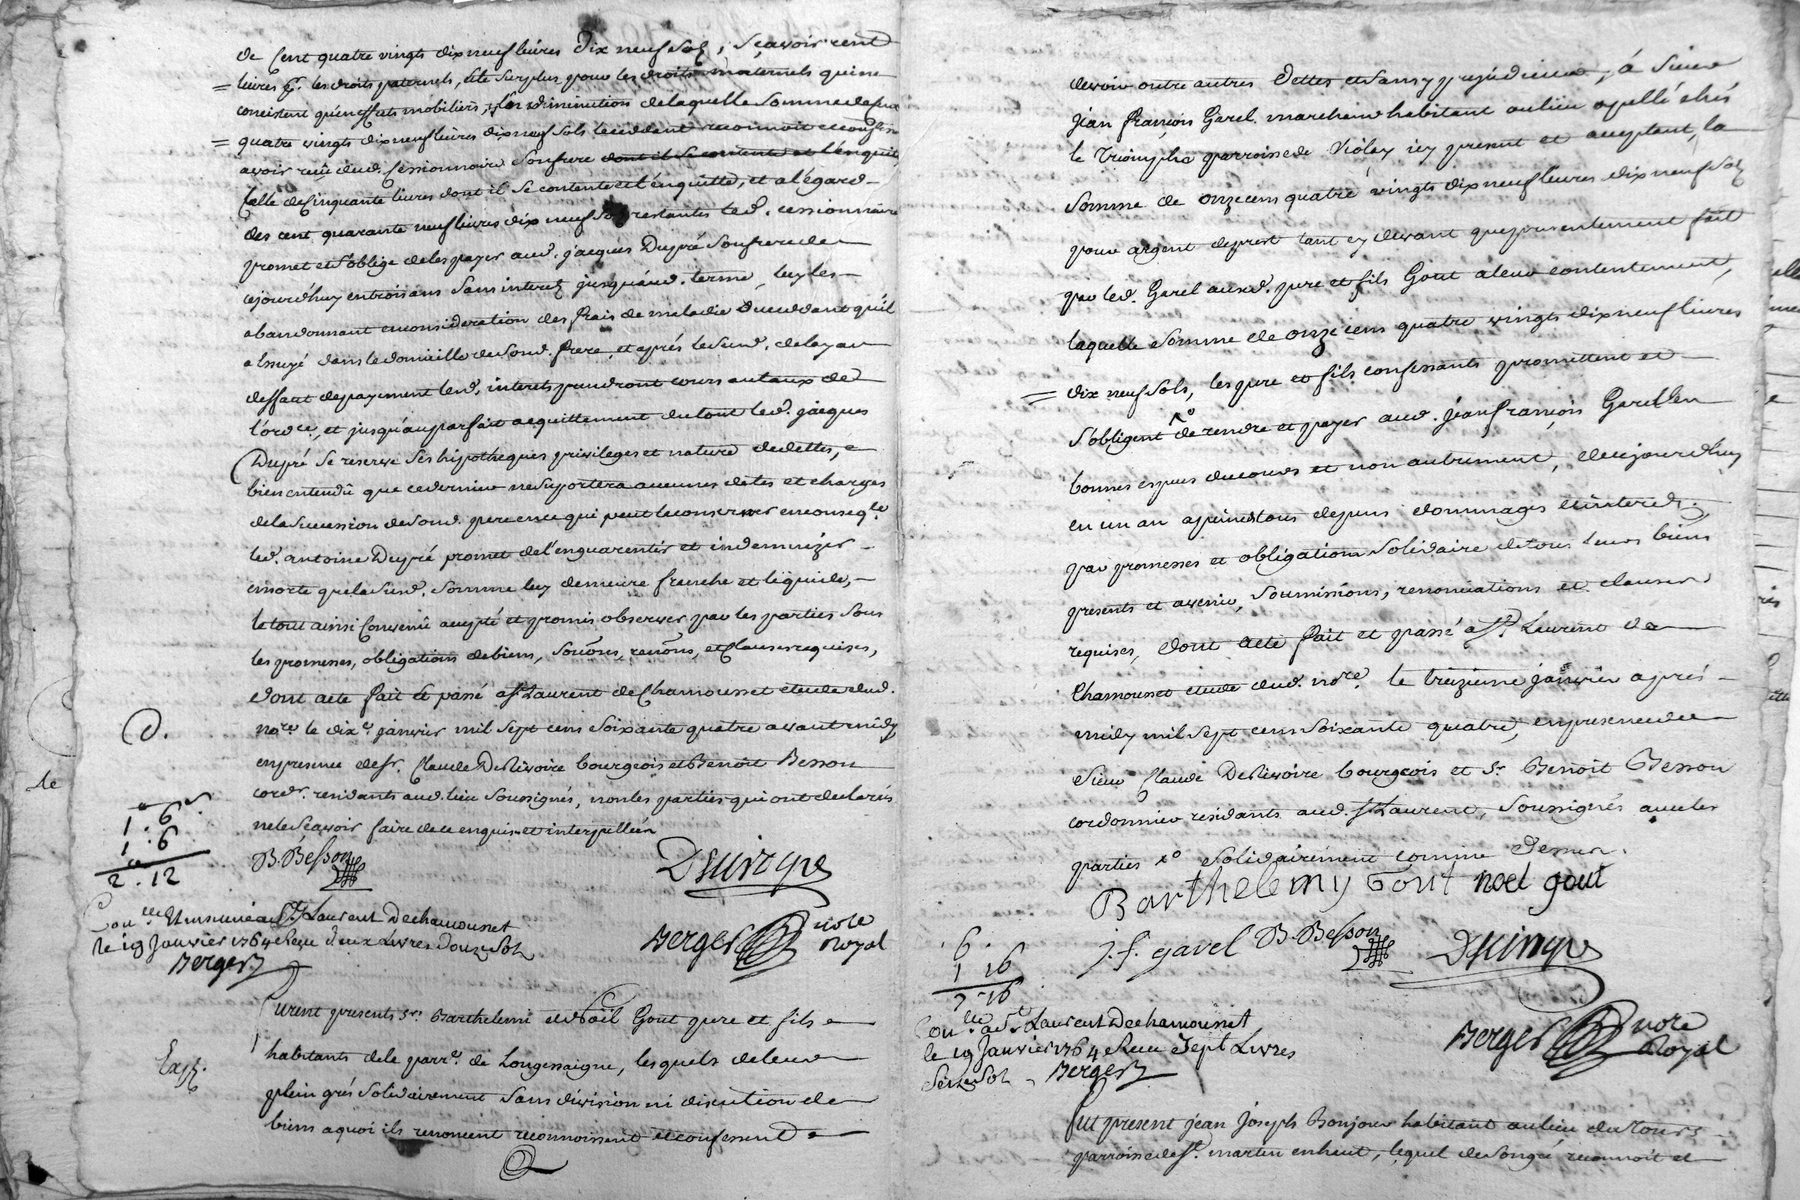 de Cent quatre vingts dix neuf livres dix neuf sols, sçavoir cent
livres pr. les droits paternels, et le surplus pour les droits maternels qui ne
consistent qu'en effets mobiliers, en diminution de laquelle somme de Cent
quatre vingts dix neuf livres dix neuf sols le cedant reconnoit et confesse
avoir reçu dud. Cessionnaire son frere dont il se contente et l'en quitte
Celle de Cinquante livres dont il se contente et l'en quitte, et a l'égard
des cent quarante neuf livres dix neuf sols restantes led. cessionnaire
promet et s'oblige de les payer aud. jacques Dupré son frere de
cejourd'huy en trois ans sans interet jusqu'aud. terme, luy les
abandonnant en consideration des frais de maladie que cedant qu'il
a essuyé dans le domicille de son d. frere, et aprés le susd. delay au
deffaut de payement lesd. interets prendront cours au taux de
l'ordce, et jusqu'au parfait acquittement du tout led. jacques
Dupré se reserve ses hipotheques privileges et nature de dettes,
bien entendû que ce dernier ne suportera aucunes dettes et charges
de la succession de sond. pere en ce qui peut le concerner en conseq.ce
led. antoine Dupré promet de l'en guarentir et indemnizer
en sorte que la susd. somme luy demeure franche et liquide,
le tout ainsi Convenû accepté et promis observer par les parties sous
les promesses, obligations de biens, soûons, renôns, et Clauses requises,
dont acte fait et passé a St Laurent de Chamousset etude dud.
nore le dixe janvier mil sept cens soixante quatre avant midy
en presence de sr. Claude DeRivoire bourgeois et Benoit Besson
cordr. residants aud. lieu soussignés, non les parties qui ont declarés
ne le sçavoir faire de ce enquis et interpellées
D.
1 . 6
1 . 6
2 . 12
B. Besson
Con.lle et insinué a St Laurent Dechamousset
le 19 Janvier 1764 Reçu deux Livres Douze Sols
Berger
Berger nore Royal
Exp.
Furent presents srs. Barthelemi et Noël Gout pere et fils
habitants de la parrsse de Longessaigne, lesquels de leur
plein grés solidairement sans division ni discution de
biens a quoi ils renoncent reconnoissent et confessent
devoir outre autres dettes et sans y prejudicier, á sieur
jean françois Garel marchand habitant au lieu apellé chés
le Triomphe parroisse de Violay icy present et acceptant, la
somme de onze cens quatre vingts dix neuf livres dix neuf sols
pour argent de prest tant cy devant que presentement fait
par led. Garel auxd. pere et fils Gout a leur contentement,
laquelle somme de onze cens quatre vingts dix neuf livres
dix neuf sols, les pere et fils confessants promettent et
s'obligent xo de rendre et payer aud. jean françois Garel en
bonnes especes de cours et non autrement, de cejourd'huy
en un an a peine de tous depens dommages et interets,
par promesses et obligation solidaire de tous leurs biens
presents et avenir, soumissions, renonciations et clauses
requises, dont acte fait et passé a St Laurent de
Chamousset etude dud. nore. le treizieme janvier aprés
midy mil sept cens soixante quatre, en presence de
sieur Claude DeRivoire bourgeois et sr Benoit Besson
cordonnier residants aud. St Laurent, soussignés avec les
parties xo solidairement comme dessus.
Barthelemy Gout noel gout
j. f. garel B. Besson
6 .
1 16
7 . 16
Con.lle a St Laurent Dechamousset
le 19 Janvier 1764 Reçu Sept Livres
Seize Sols Berger
Berger nore Royal
Fut present jean joseph Bonjour habitant au lieu du Tours
parroisse de St. martin en haut, lequel de son gré reconnoit et